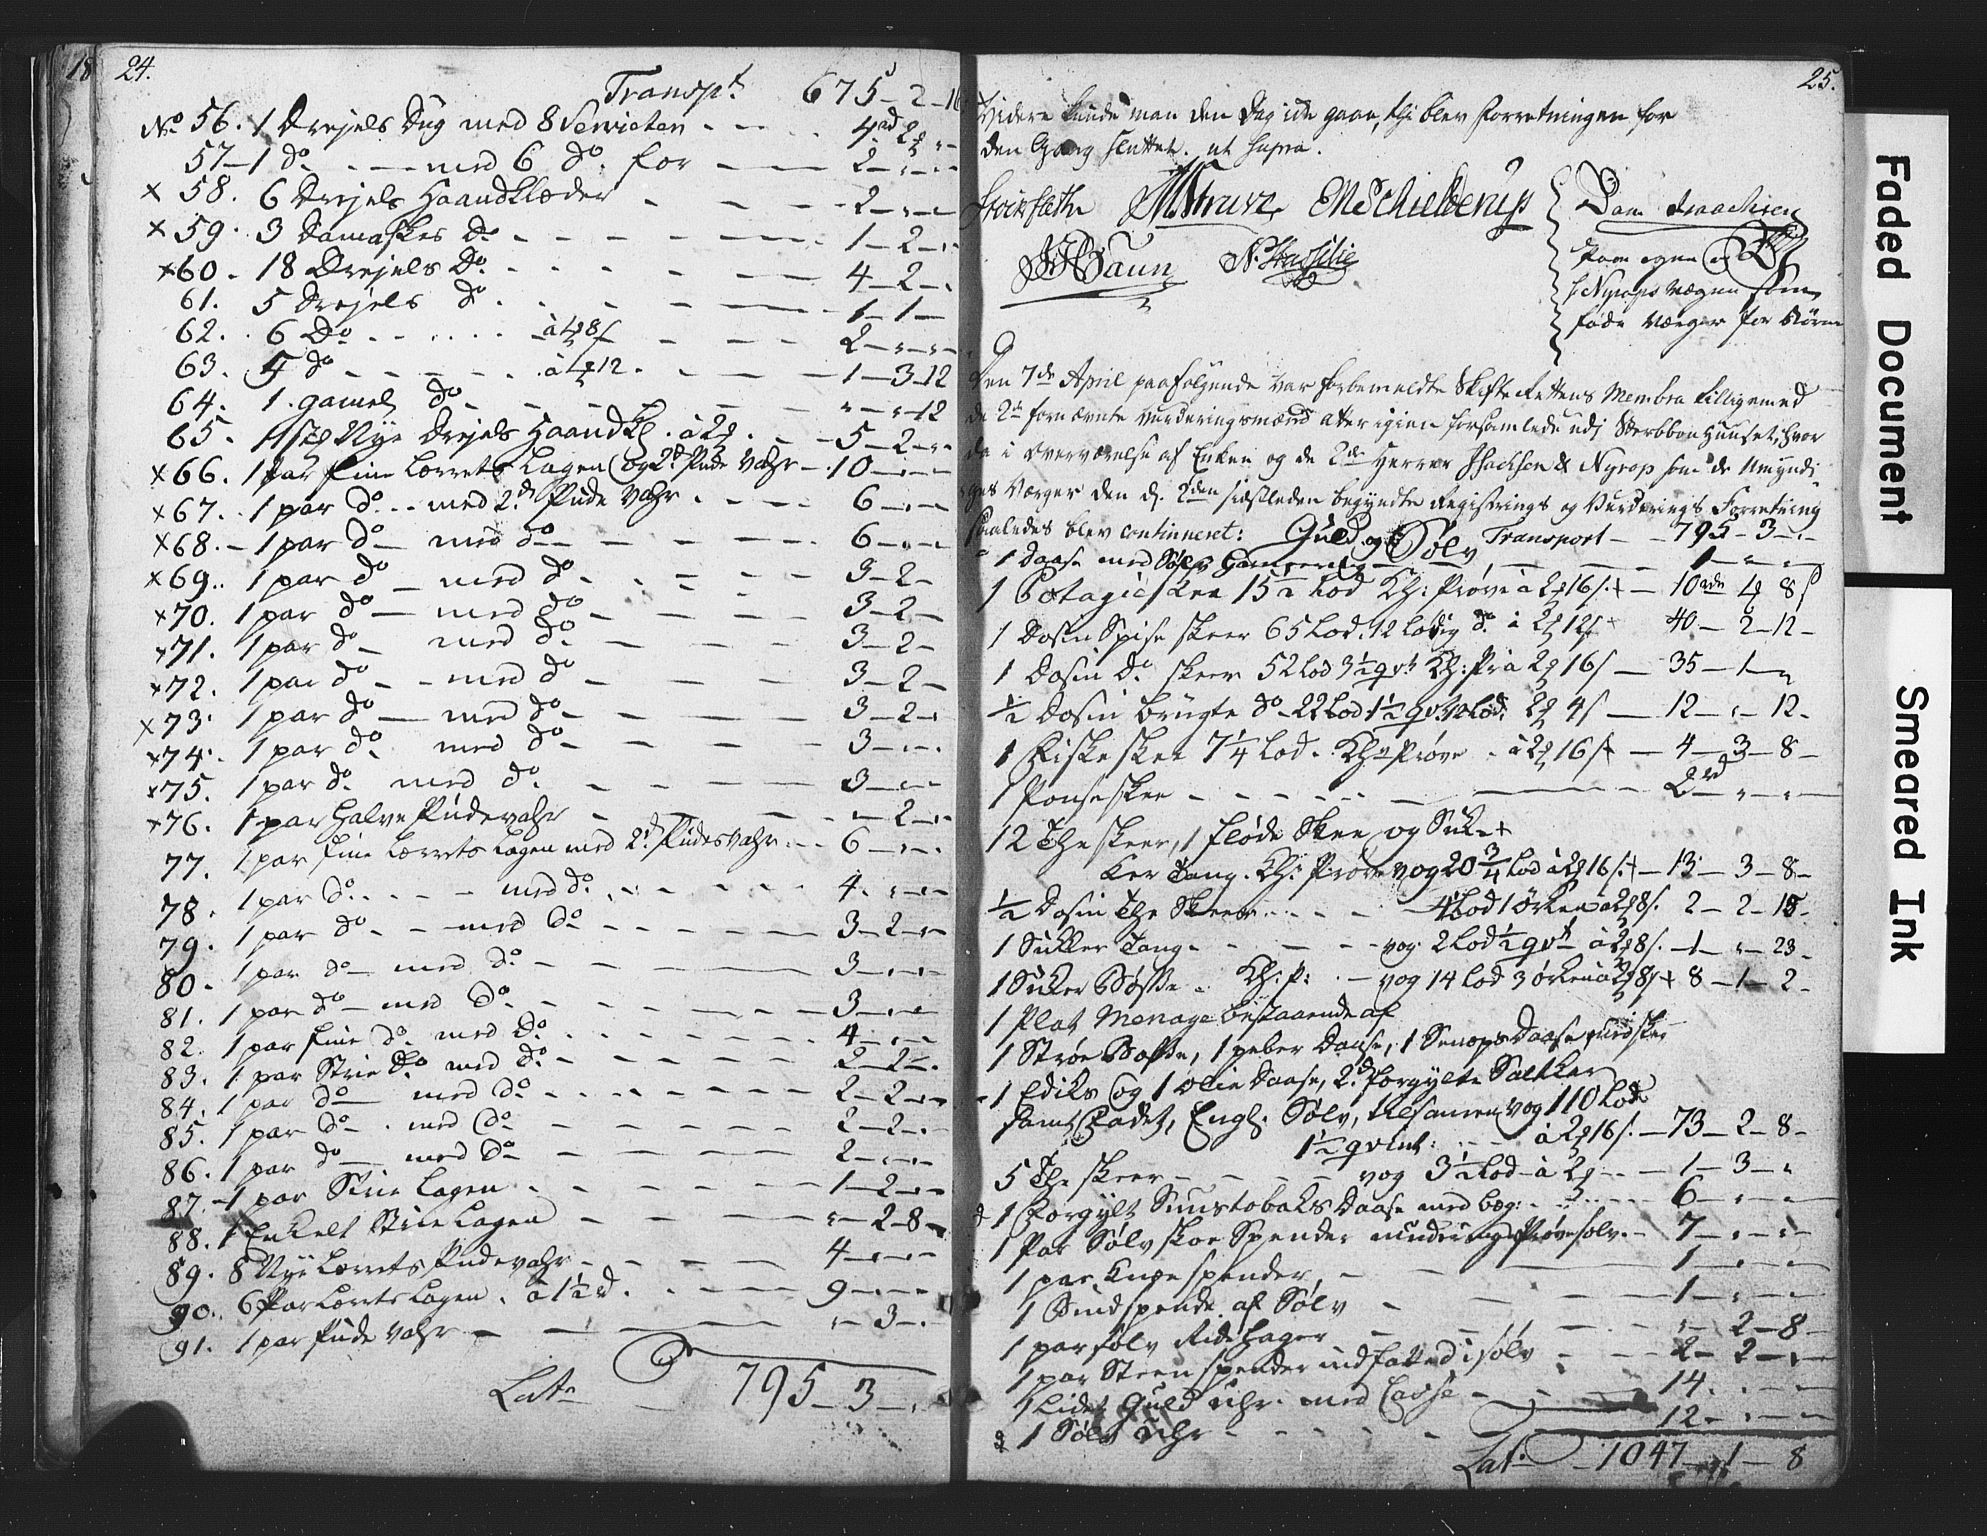 18
24.
Transpt. 675-2-16
No. 56. 1 Drejels Dug med 8 Servieter - - - 4rd 2
57 - 1 do. - - - med 6 do. for - - 2 - " - "
x 58. 6 Drejels Haandklæder - - - 2 - " - "
x 59. 3 Damaskes do - - - 1 - 2 - "
x 60. 18 Drejels do. - - - 4 - 2 - "
61. 5 Drejels do. - - - 1 - 1 -
62. 6 do - - - à 8 s - - 2 - " - "
63. 5 do - - - à 12. - - 1 - 3 - 12
64. 1 gamel do - - - " - " - 12
65. Nye Drejels Haandkl. à 2 - - 5 - 2 - "
x 66. 1 Par fine Lærrets Lagen og 2de Pude Vahr - 10 - " - "
x 67. 1 par do. - - med 2de Pude Vahr - - - 6 - " - "
x 68. - 1 par do - med do - - - 6 - " - "
x 69. 1 par do - med do - - - 3 - 2 -
x 70. 1 par do - med do - - - 3 - 2 -
x 71. 1 par do - med do - - - 3 - 2 -
x 72. 1 par do - - med do - - - 3 - 2 -
x 73. 1 par do - med do - - - 3 - 2 - "
x 74. 1 par do. med do - - - 3 - " - "
x 75. 1 par do. med do. - - - 3 - " - "
x 76. 1 par halve Pudevahr - - - " - 2 - "
77. 1 par fine Lærrets Lagen med 2de Pudesvahr - - 6 - " - "
78. 1 par do. - - - med do. - - - 4. " - "
79. 1 par do - - med do - - - 3 - 2 - "
80. 1 par do - med do. - - - 3 - " - "
81. 1 par do - med do. - - - 3 - " - "
82. 1 par fine do. med do. - - - 4 - " - "
83. 1 par Strie do. med do. - - - 2 - 2 -
84. 1 par do - med do. - - - 2 - 2 - "
85. 1 par do - . med do - - - 2 - 2 - "
86. 1 par do - med do - - - 2 - " - "
87. - 1 par Strie Lagen - - - 1 - 2 - "
88. 1 Enkelt Strie Lagen - - - " - 2 - 8 -
89. 8 Nye Lærrets Pudevahr - - - 4 - " - "
90. 6 Par Lærrets Lagen. à 1½ rd. - - - 9 - " - "
91. 1 par Pude Vahr - - - " - 3 - "
Lat. - 795 - 3 - "
25.
Videre kunde man den Dag icke gaae, thi blev Forretningen for
den Gang sluttet. ut supra.
Struve EM Schielderup
Paa egen
Nyrops Vægne som
fødte Værger for Børne
Den 7de April paafølgende var forbemeldte Skifte Rettens Membra tilligemed
de 2de fornævnte Vurderingsmænd atter igien forsamlede udj Sterbboe Huuset, hvor
da i Overværelse af Enken og de 2de Herrer Isachsen & Nyrop som de Umyndi-
ges Værger den d. 2den sidstleden begyndte Registerings og Vurderings Forretning
saaledes blev continueret: Guld og Sølv Transport - - 795 - 3 - "
1 Daase med Sølv - - - 1 - " - "
1 Potagieskee 15½ Lod Kh: Prøve à 2 16 s. + - 10 rdr 4 8 s
1 Dosin Spise skeer 65 Lod. 12 Lodig do. à 2 12 s + 40 - 2 - 12 -
1 Dosin do. skeer 52 Lod 3½ qvt Kh: Pr à 2 16 s - 35 - 1 - "
½ Dosin brugte do - 22 Lod 1½ qvt 12 Lod: 2 4 s - 12 - " - 12 -
1 Fiske skee 7¼ Lod. Kh Prøve - à 2 16 s + - 4 - 3 - 8 -
1 Ponse skee - - - 2 rd - " - "
12 The skeer, 1 Fløde Skee og Suk +
ker Tang. Kh: Prøve vog 20¾ Lod à 2 16 s. + - 13 - 3 - 8 -
½ Dosin The Skeer - - - 4 Lod 1 örken à 2 8 s. 2 - 2 - 15 -
1 Sukker Tang - - - vog. 2 Lod ½ qvt à 2 8 s. - 1 - " - 23 -
1 Sukker Bøsse - Kh: P: - vog 14 Lod 3 örken à 2 8 s + 8 - 1 - 2 -
1 Plat Menage bestaaende af
1 Strøe Bøsse, 1 peber Daase, 1 Senops Daase med skee
- 1 Ediks og 1 Olie Daase, 2de forgylte Saltkar
samt Fadet, Engl. Sølv, tilsamen vog 110 Lod
1½ qvint: - - à 2 16 s. - 73 - 2 - 8 -
5 The skeer - - - vog 3½ Lod - à 2 - - 1 - 3 - "
1 Forgylt Snustobaks Daase med bæg: - - 6 - " - "
1 Par Sølv skoe Spender mindring Prøvesølv. - 7 - " - "
1 par Knæ spender, - - - 1 - " - "
1 Sindspende af Sølv - - - 1 - " - "
1 par sølv - - - " - 2 - 8 -
1 par Steen spender indfatted i sølv - - - 2 - 2 - "
1 Lidet Guld Uhr. med Casse - - - 14. " - "
1 Sølv Uhr - - - 12 - " - "
Lat. - 1047 - 1 - 8
Faded Document
Smeared Ink